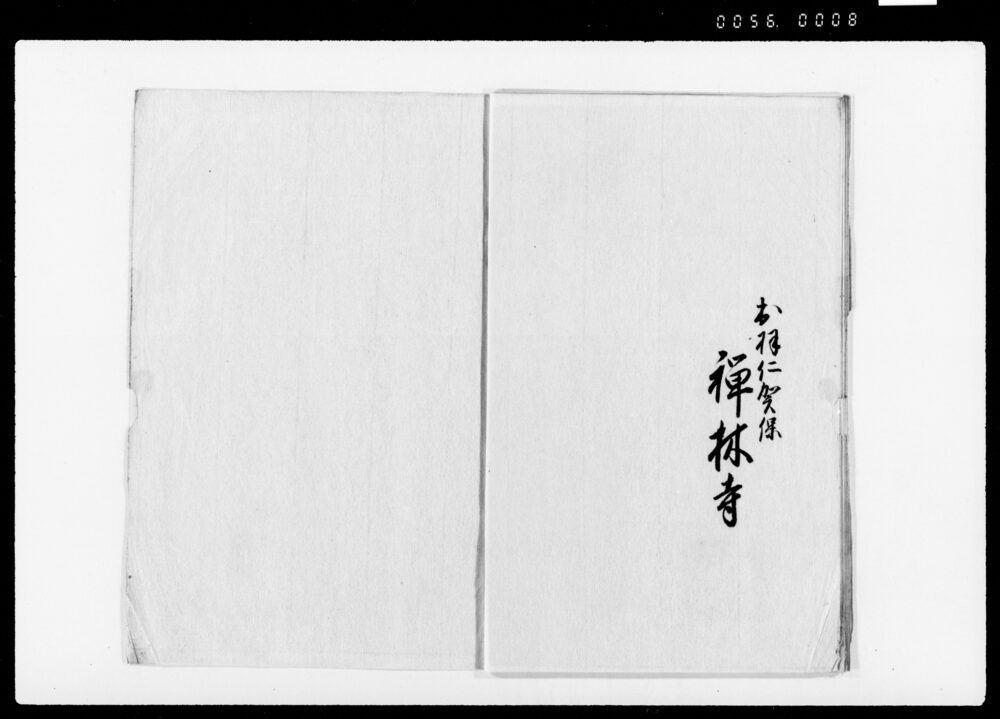 0056. 0008
出羽仁賀保
禅林寺